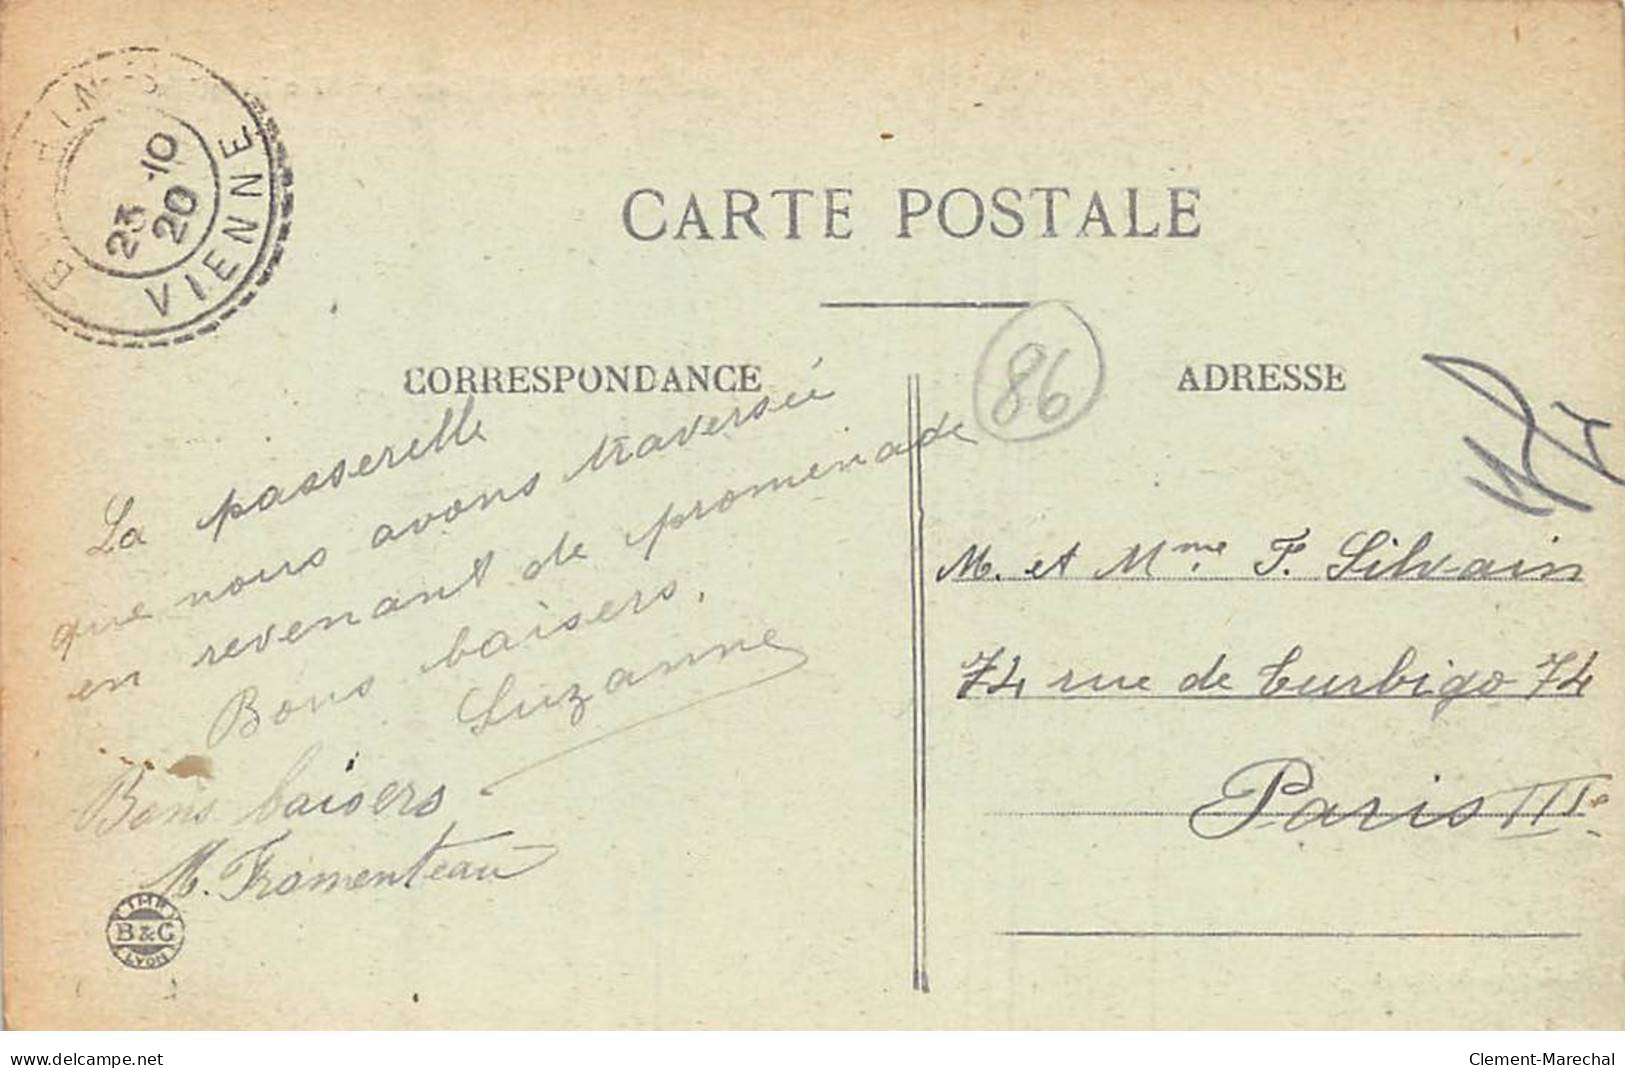 VIENNE
23 -10
20
CARTE POSTALE
CORRESPONDANCE
86
ADRESSE
La passerelle
que nous avons traversée
en revenant de promenade
Bons baisers.
Suzanne
Bons baisers
M. Fromenteau
M. et Mme F. Silvain
74 rue de Turbigo 74
Paris IIIe
IMP.
B&G
LYON
www.delcampe.net
Clement-Marechal